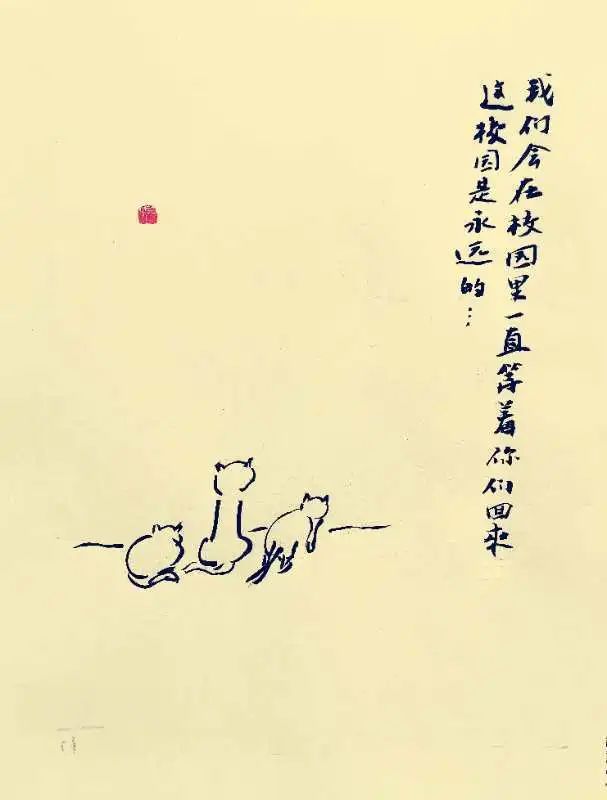 我们会在校园里一直等着你们回来
这校园是永远的…